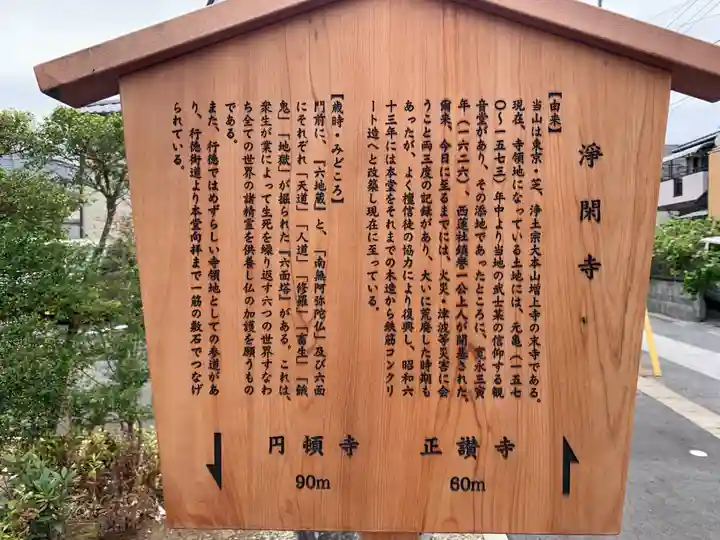 淨閑寺
【由来】
当山は東京・芝、浄土宗大本山増上寺の末寺である。
現在、寺領地になっている土地には、元亀（一五七
〇〜一五七三）年中より当地の武士某の信仰する観
音堂があり、その添地であったところに、寛永三寅
年（一六二六）、西蓮社鎮誉一公上人が開基された。
爾来、今日に至るまでには、火災・津波等災害に会
うこと両三度の記録があり、大いに荒廃した時期も
あったが、よく檀信徒の協力により復興し、昭和六
十三年には本堂をそれまでの木造から鉄筋コンクリ
ート造へと改築し現在に至っている。
【歳時・みどころ】
門前に、『六地蔵』と、「南無阿弥陀仏」及び六面
にそれぞれ「天道」「人道」「修羅」「畜生」「餓
鬼」「地獄」が掘られた『六面塔』がある。これは、
衆生が業によって生死を繰り返す六つの世界すなわ
ち全ての世界の諸精霊を供養し仏の加護を願うもの
である。
また、行徳ではめずらしい寺領地としての参道があ
り、行徳街道より本堂向拝まで一筋の敷石でつなげ
られている。
正讃寺
60m
円頓寺
90m